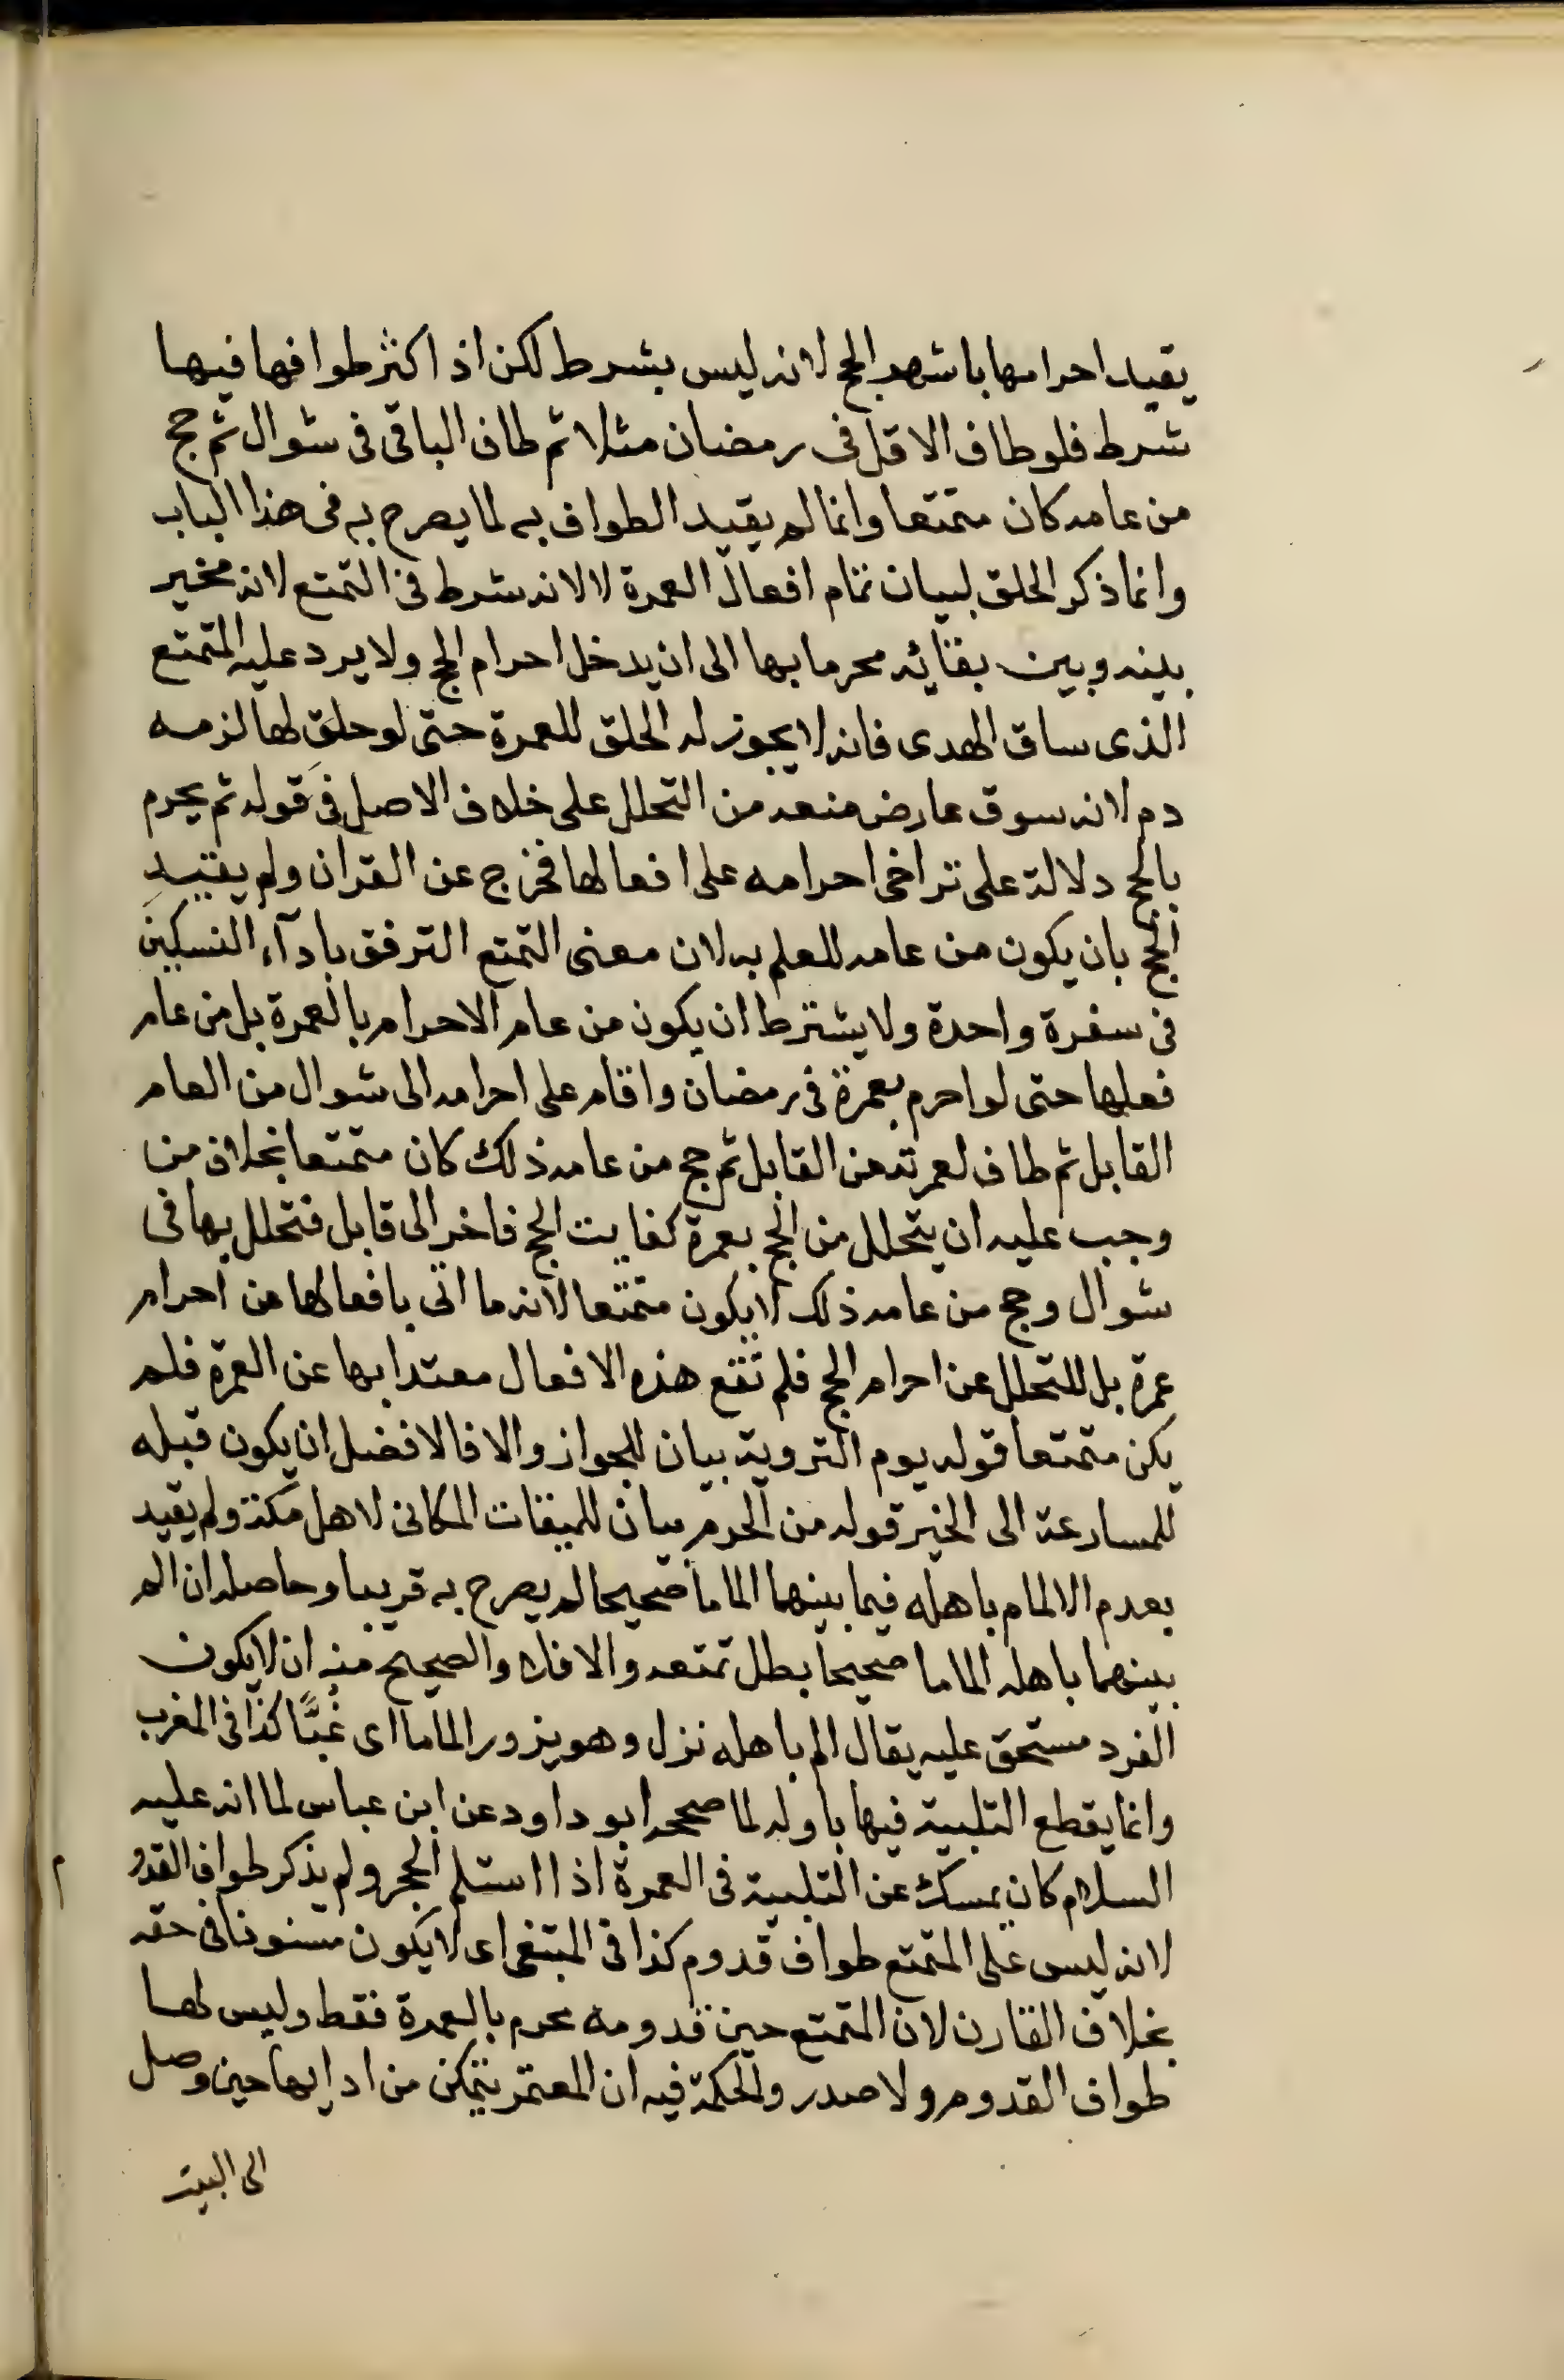 يقيد احرامها باشهر الحج لانه ليس بشرط لكن اذ اكثر طوافها فيها
شرط فلو طاف الاقل فى رمضان مثلا ثم طاف الباقى فى شوال ثم حج
من عامه كان متمتعا وانما لم يقيد الطواف به لما يصرح به فى هذا الباب
وانما ذكر الحلق لبيان تمام افعال العمرة لا لانه شرط فى التمتع لانه مخير
بينه وبين بقائه محرما بها الى ان يدخل احرام الحج ولا يرد عليه المتمتع
الذى ساق الهدى فانه لا يجوز له الحلق للعمرة حتى لو حلق لها لزمه
دم لانه سوق عارض منعه من التحلل على خلاف الاصل فى قوله ثم يحرم
بالحج دلالة على تراخى احرامه على افعالها فخرج عن القران ولم يقيد
الحج بان يكون من عامه للعلم به لان معنى التمتع الترفق باداء النسكين
فى سفرة واحدة ولا يشترط ان يكون من عام الاحرام بالعمرة بل من عام
فعلها حتى لو احرم بعمرة فى رمضان واقام على احرامه الى شوال من العام
القابل ثم طاف لعمرته من القابل ثم حج من عامه ذلك كان متمتعا بخلاف من
وجب عليه ان يتحلل من الحج بعمرة كفايت الحج فاخر الى قابل فتحلل بها فى
شوال وحج من عامه ذلك لا يكون متمتعا لانه ما اتى بافعالها من احرام
عمرة بل للتحلل عن احرام الحج فلم تقع هذه الافعال معتدا بها عن العمرة فلم
يكن متمتعا قوله يوم التروية بيان للجواز والا فالافضل ان يكون قبله
للمسارعة الى الخير قوله من الحرم بيان للميقات المكانى لاهل مكة ولم يقيد
بعدم الالمام باهله فيما بينهما الماما صحيحا لم يصرح به قريبا وحاصله ان الم
بينهما باهله الماما صحيحا بطل تمتعه والا فلا والصحيح منه ان لا يكون
الفرد مستحق عليه يقال الم باهله نزل وهو يزور الماما اى غبًّا كذا فى المغرب
وانما يقطع التلبية فيها باوله لما صححه ابو داود عن ابن عباس لما انه عليه
السلام كان يمسك عن التلبية فى العمرة اذا استلم الحجر ولم يذكر طواف القدو
م
لانه ليس على المتمتع طواف قدوم كذا فى المبتغى اى لا يكون مسنونا فى حقه
بخلاف القارن لان المتمتع حين قدومه محرم بالعمرة فقط وليس لها
طواف القدوم ولا صدر والحكمة فيه ان المعتمر يتمكن من ادايها حين وصل
الى البيت